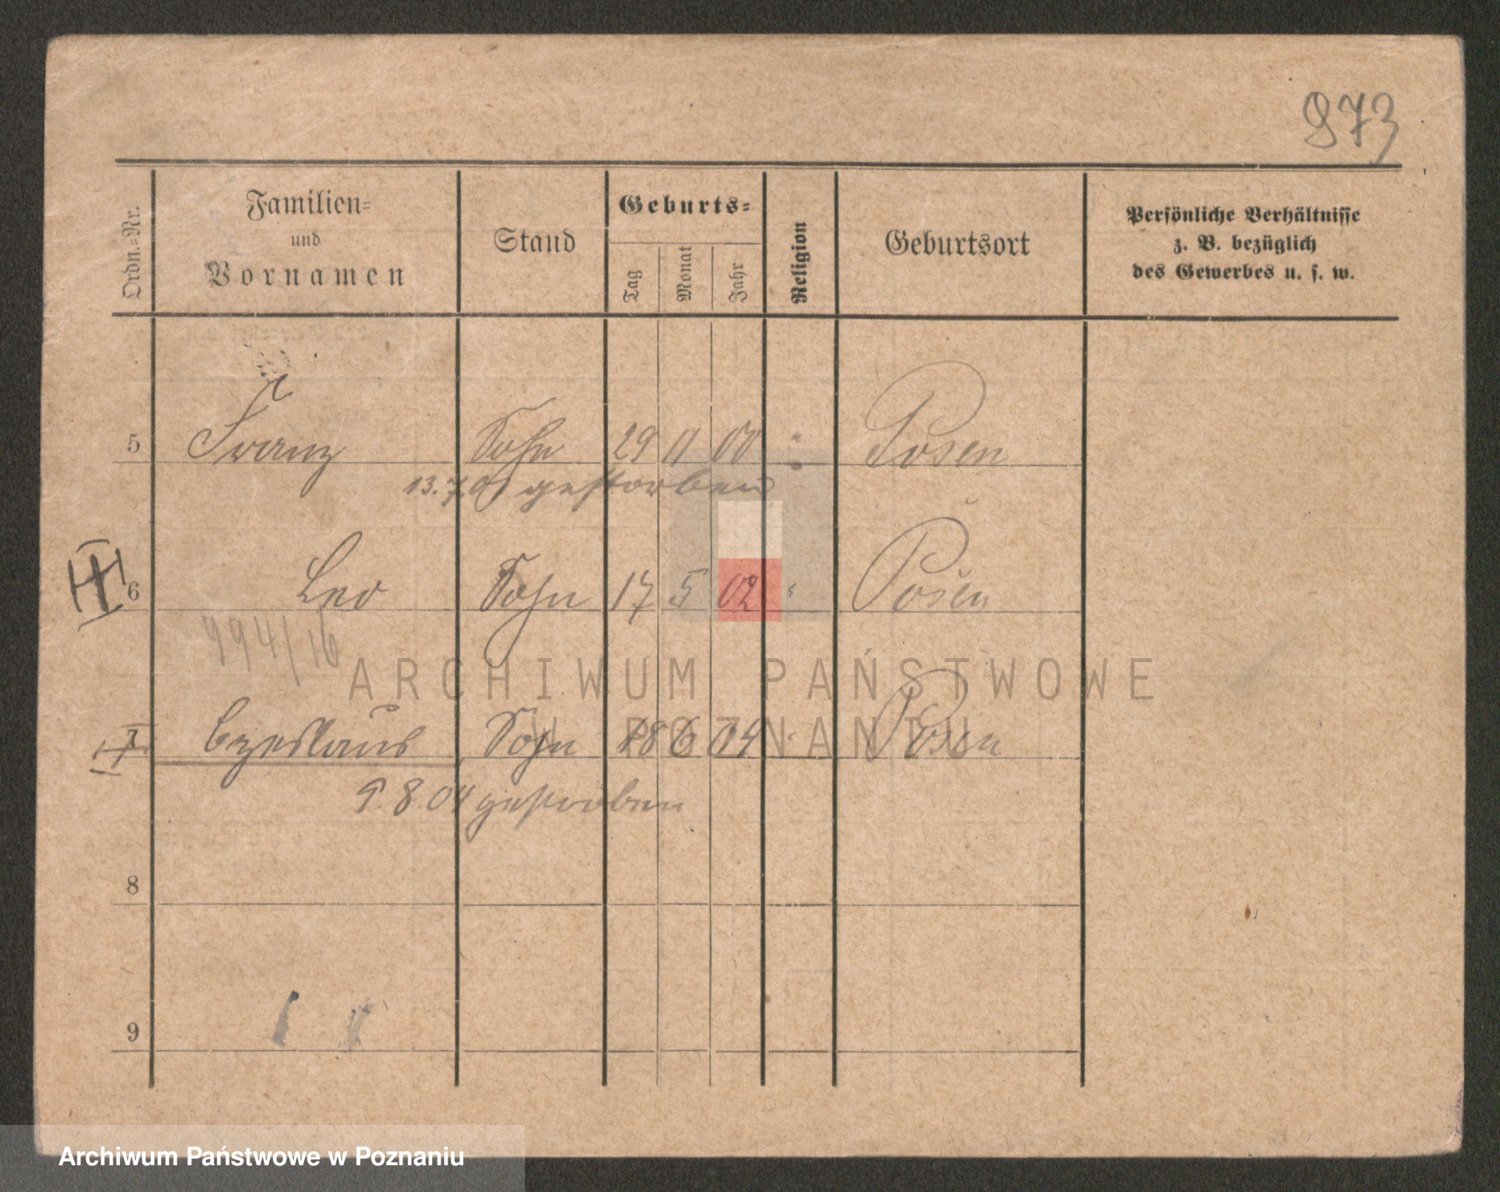 873
Ordn.=Nr.
Familien=
und
Vornamen
Stand
Geburts=
Tag
Monat
Jahr
Religion
Geburtsort
Persönliche Verhältnisse
z. B. bezüglich
des Gewerbes u. s. w.
5 Franz Sohn 29 11 00 " Posen
13.7.01 gestorben
6 Leo Sohn 17 5 02 " Posen
994/16
ARCHIWUM PAŃSTWOWE
W POZNANIU
7 Czeslaus Sohn 18 6 04 " Posen
9.8.04 gestorben
8
9
Archiwum Państwowe w Poznaniu